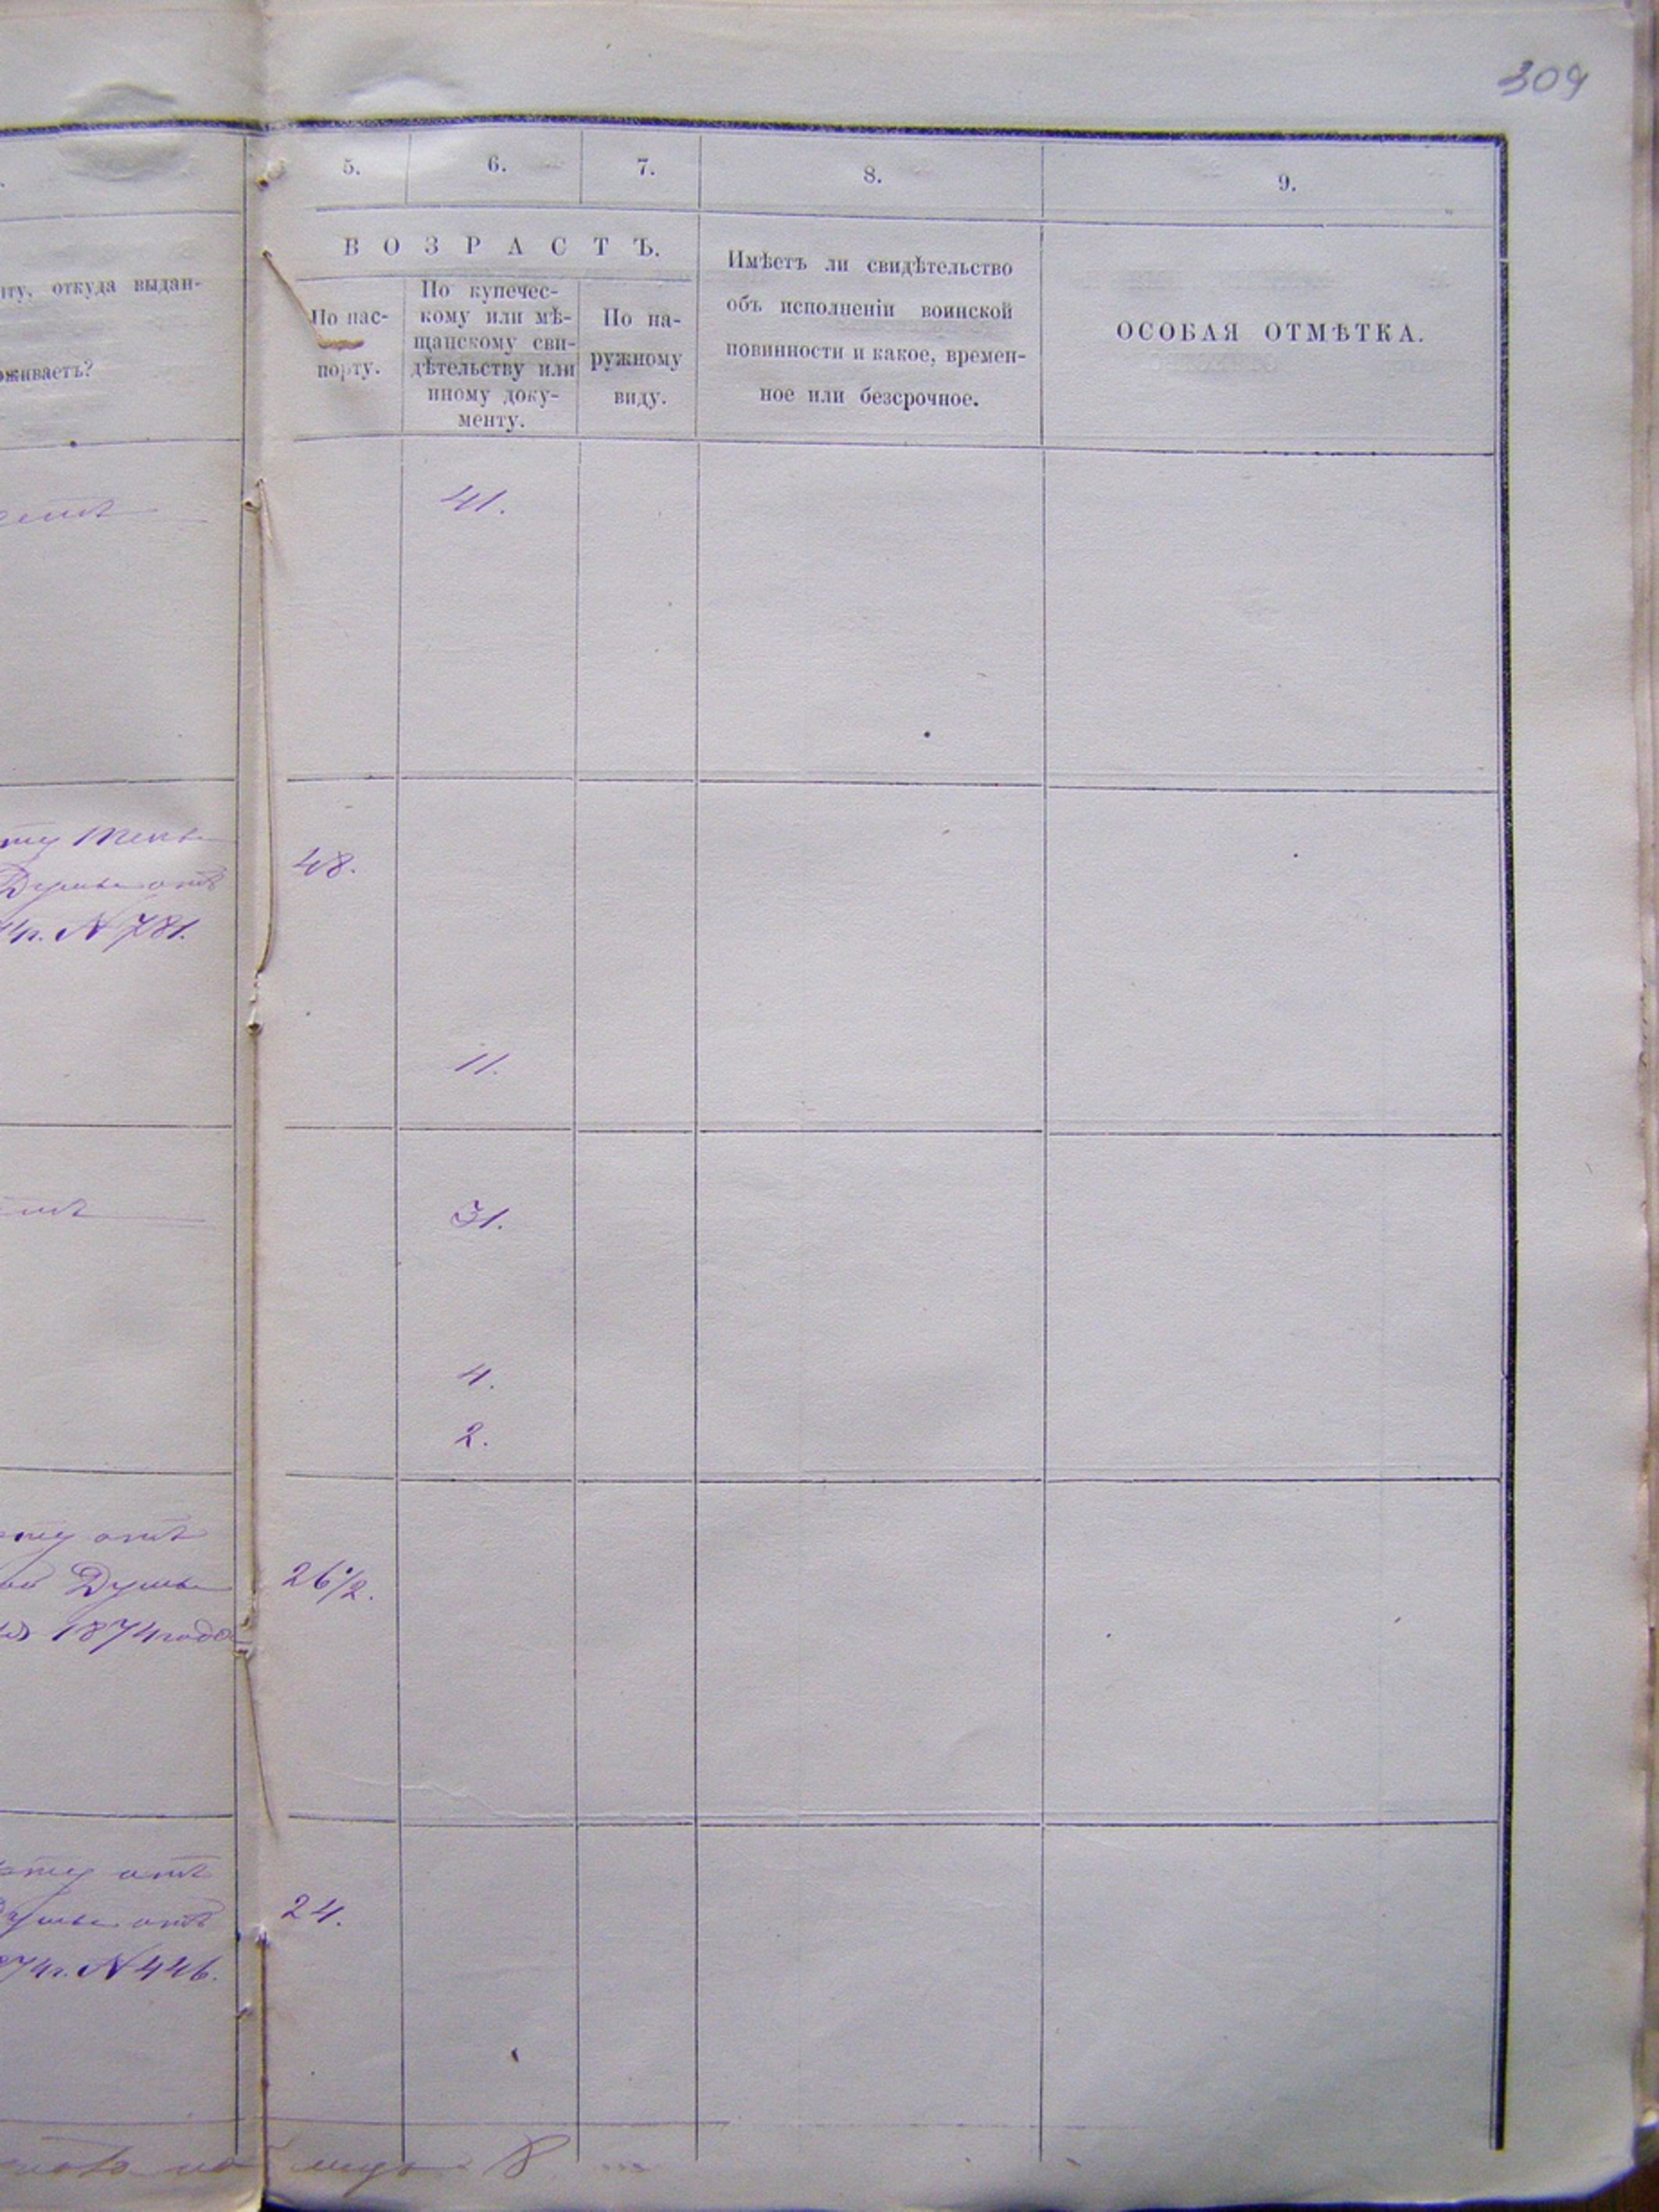 309
5. 6. 7. 8. 9.
ВОЗРАСТЪ.
ту, откуда выдан-
оживаетъ?
По пас-
порту.
По купечес-
кому или мѣ-
щанскому сви-
дѣтельству или
иному доку-
менту.
По на-
ружному
виду.
Имѣетъ ли свидѣтельство
объ исполненіи воинской
повинности и какое, времен-
ное или безсрочное.
ОСОБАЯ ОТМѢТКА.
41.
48.
Думы отъ
4г. N 781.
11.
31.
4.
2.
отъ
Думы
1874 года
26 1/2.
отъ
Думы отъ
74г. N 446.
24.
8